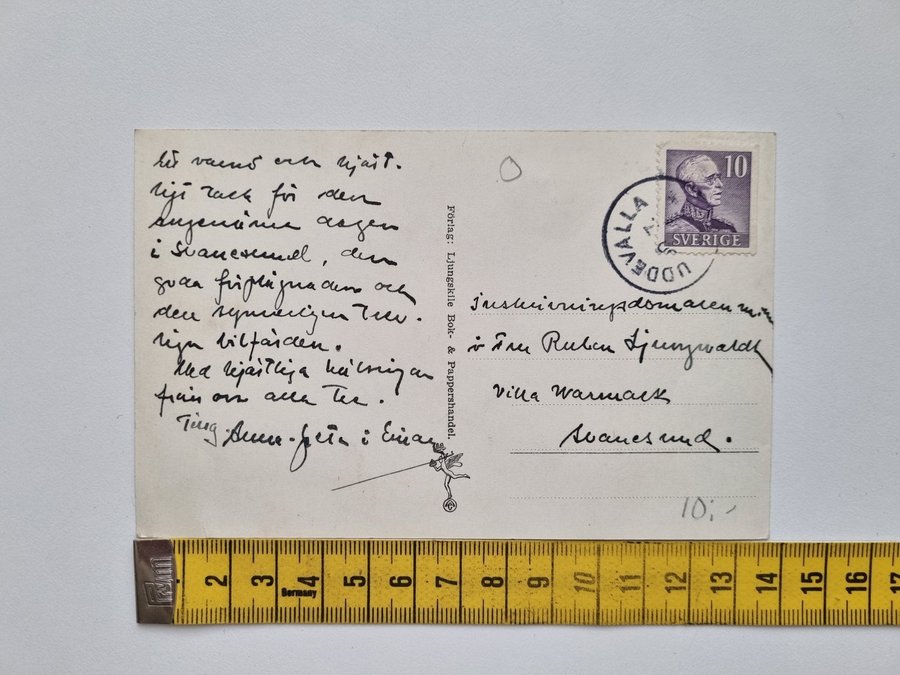 Ett varmt och hjärt-
ligt tack för den
angenäma dagen
i Svanesund, den
goda förplägnaden och
den synnerligen trev-
liga bilfärden.
Med hjärtliga hälsningar
från oss alla tre.
Anna-Greta i Einar
Förlag: Ljungskile Bok- & Pappershandel.
10
SVERIGE
UDDEVALLA
Inskrivningsdomaren
o Fru Ruben Ljungwaldh
Villa Warmack
Svanesund.
10:-
cm
1 2 3 4 5 6 7 8 9 10 11 12 13 14 15 16 17
Germany